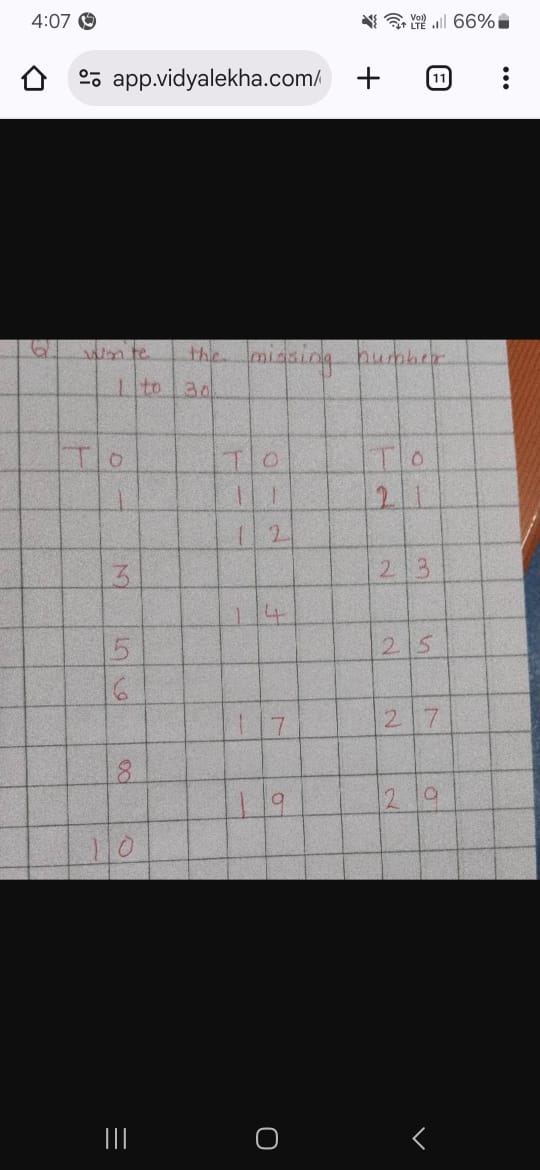 4:07
Vo)) LTE 66%
app.vidyalekha.com/ + 11
Q write the missing number
1 to 30
T O T O T O
1 1 1 2 1
1 2
3 2 3
1 4
5 2 5
6
1 7 2 7
8
1 9 2 9
1 0